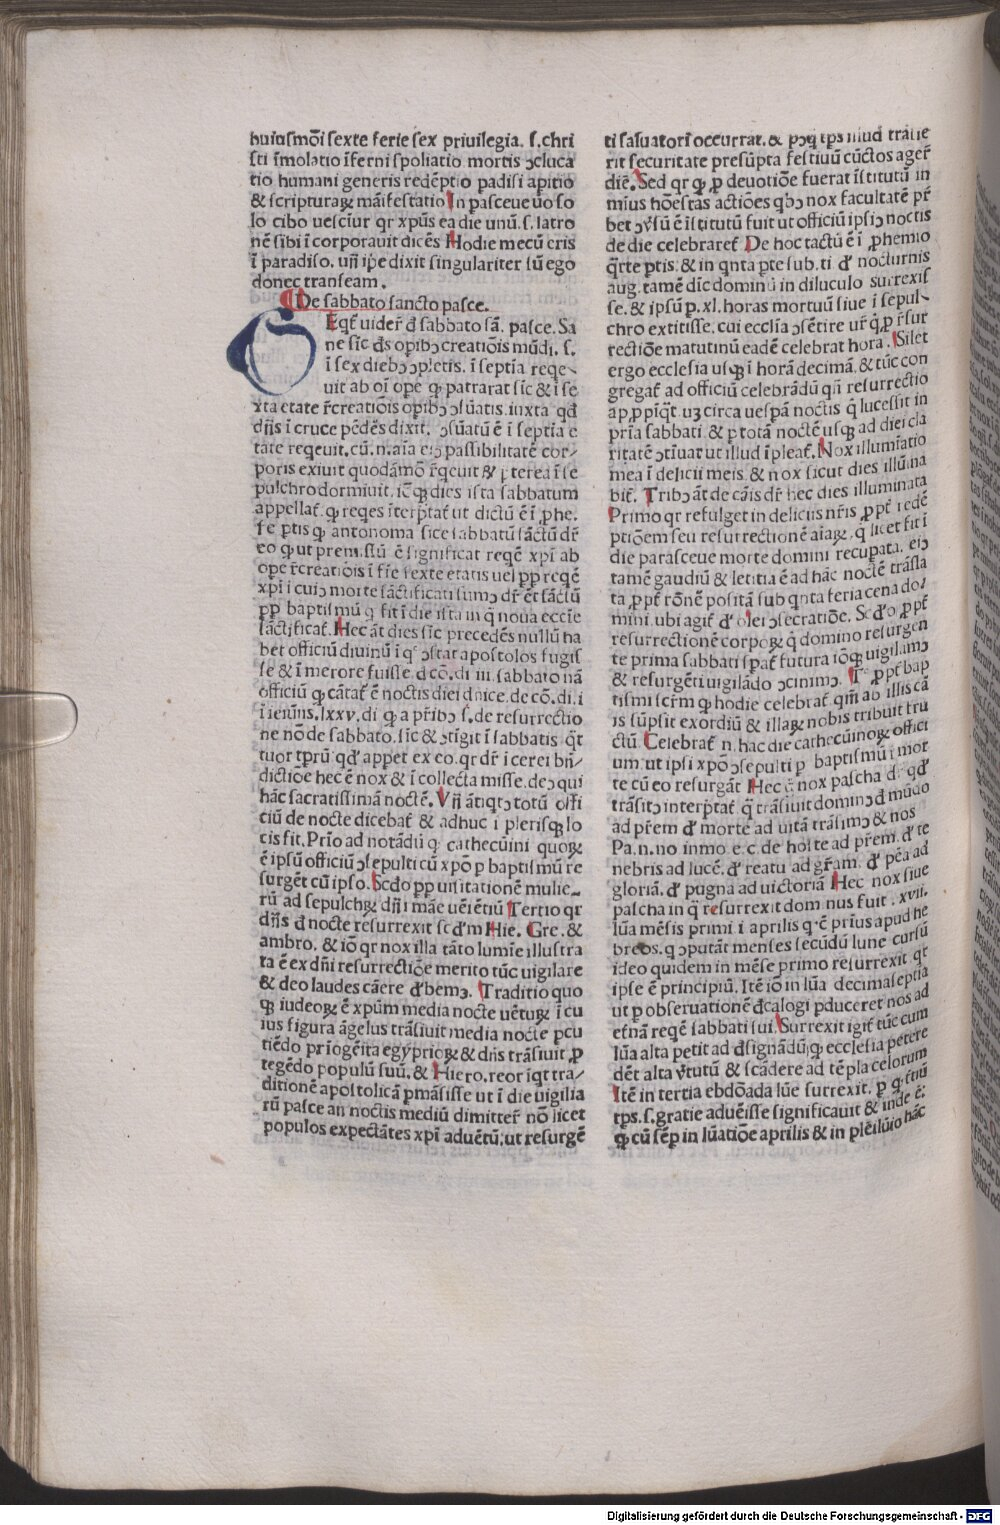 huiusmōi sexte ferie sex priuilegia. ſ. chri
ſti īmolatio īferni ſpoliatio mortis ↄcluca
tio humani generis redēptio padiſi apitio
& ſcripturaꝝ māifeſtatio In paſceue uo ſo
lo cibo ueſcīur qr xpūs ea die unū. ſ. latro
nē ſibi ī corporauit dicēs Hodie mecū eris
ī paradiſo. uñ ip̄e dixit ſingulariter ſū ego
donec tranſeam.
De ſabbato ſancto paſce.
Eqť uider̄ đ ſabbato ſā. paſce. Sa
ne ſic̄ đs opibↄ creatiōis mūdi. ſ.
ī ſex diebↄ ↄpletis. ī ſeptīa reqe-
uit ab oī ope qȝ patrarat ſic & ī ſe
xta etate r̄creatiōis opibↄ ↄſūatis. iuxta qđ
dñs ī cruce pēdēs dixit. ↄſūatū ē ī ſeptīa e
tate reqeuit. cū. n. aīa eiↄ paſſibilitatē cor-
poris exiuit quodāmō r̄qeuit & ꝓterea ī ſe
pulchro dormiuit. iō qȝ dies iſta ſabbatum
appellať. qȝ reqes īterp̄tať ut dictū ē ī ꝓhe.
ſe ptis qȝ antonoma ſice ſabbatū ſāctū dr̄
eo qȝ ut premiſſū ē ſignificat reqē xp̄i ab
ope r̄creatiōis ī fīe ſexte etatis uel pp reqē
xp̄i ī cuiↄ morte ſāctificati ſumↄ dr̄ ēt ſāctū
pp baptiſmū q fit ī die iſta in q̄ noua eccīe
ſāctificať. Hec āt dies ſic̄ precedēs nullū ha
bet officiū diuinū ī qᶜ ↄſtat apoſtolos fugiſ
ſe & ī merore fuiſſe. đ cō. di iii. ſabbato nā
officiū qȝ cātať ē noctis diei dnice. de cō. di. i
ī ieiuīis. lxxv. di qȝ a pr̄ibↄ ſ. de reſurrectio
ne nō de ſabbato. ſic & ↄtigit ī ſabbatis q̄t
tuor tp̄rū qđ appet ex eo. qr dr̄ ī cerei bn̄-
dictiōe hec ē nox & ī collecta miſſe. deↄ qui
hāc ſacratiſſimā noctē. Vñ ātiqtↄ totū offi
ciū de nocte dicebať & adhuc ī pleriſqȝ lo
cis fit. Prīo ad notādū q cathecuīni quoꝝ
ē ipſū officiū ↄſepulti cū xpō p baptiſmū re
ſurgēt cū ipſo. Scdo pp uiſitationē mulie-
rū ad ſepulchꝝ dñi ī māe uēiētiū Tertio qr
dñs đ nocte reſurrexit ſc đm Hie. Gre. &
ambro. & iō qr nox illa tāto lumīe illuſtra
ta ē ex dñi reſurrectiōe merito tūc uigilare
& deo laudes cāere đbemↄ. Traditio quo
qȝ iudeoꝝ ē xpūm media nocte uētuꝝ ī cu
ius figura āgelus trāſiuit media nocte pcu
tiēdo prīogēita egyprioꝝ & dñs trāſiuit ꝓ
tegēdo populū ſuū. & Hiero. reor īqt tra-
ditionē apoſtolicā pmāſiſſe ut ī die uigilia
rū paſce an noctis mediū dimitter̄ nō licet
populos expectātes xp̄i aduētū; ut reſurgē
ti ſaluatori occurrat. & pↄq̄ tp̄s illud trāſie
rit ſecuritate preſūpta feſtiuū cūctos ager̄
diē. Sed qr qȝ ꝓ deuotiōe fuerat īſtitutū in
mīus hōeſtas actiōes qbↄ nox facultatē pr̄
bet ↄúſū ē īſtitutū fuit ut officiū ipſiↄ noctis
de die celebrareť. De hoc tactū ē ī ꝓhemio
q̄rte ptis. & in qnta pte ſub. ti đ nocturnis
aug. tamē dic̄ dominū in diluculo surrexiſ
ſe. & ipſū p. xl. horas mortuū ſiue ī ſepul-
chro extitiſſe. cui eccl̄ia ↄſētire ur̄ q̄ p r̄ſur
rectiōe matutinū eadē celebrat hora. Silet
ergo eccleſia uſqȝ ī horā decimā. & tūc con
gregať ad officiū celebrādū qñ reſurrectio
appropīqt. uȝ circa ueſpā noctis q̄ luceſſit in
prīa ſabbati. & p totā noctē uſqȝ ad diei cla
ritatē ↄtīuat ut illud ī pleať. Nox illumīatio
mea ī delicii meis. & nox ſicut dies illūīna
biť. Tribↄ āt de cāis dr̄ hec dies illuminata
Primo qr refulget in deliciis nr̄is ꝓpť redē
ptiōem ſeu reſurrectionē aīaꝝ. q licet fit ī
die paraſceue morte domini recupata. eiↄ
tamē gaudiū & letitia ē ad hāc noctē trāſla
ta ꝓpť rōnē poſitā ſub qnta feria cena do-
mini. ubi agiť đ olei ↄſecratiōe. Scđo ꝓpť
reſurrectionē corpoꝝ q̄ domino reſurgen
te prima ſabbati ſpať futura iō qȝ uigilamↄ
& reſurgēti uigilādo ↄcinimↄ. Tº ꝓpť bap
tiſmi ſcr̄m qȝ hodie celebrať. qm̄ ab illis cā
is ſūpſit exordiū & illaꝝ nobis tribuit fru
ctū. Celebrať. n. hac die cathecūinoꝝ offici
um. ut ipſi xpō ↄſepulti p baptiſmū ī mor
te cū eo reſurgāt Hec q̄ nox paſcha dr̄ qđ
trāſitↄ interp̄tať. q̄ trāſiuit dominↄ đ mūdo
ad pr̄em đ morte ad uitā trāſimↄ & nos
Pa. n. no inmo e. c. de hoſte ad pr̄em. đ te
nebris ad lucē. đ reatu ad gr̄am. đ pēa ad
gloriā. đ pugna ad uictoriā Hec nox ſiue
paſcha in q̄ reſurrexit dominus fuit. xvii.
lūa mēſis primi ī aprilis q·ē prīus apud he
breos. q ↄputāt menſes ſecūdū lune curſū
ideo quidem in mēſe primo reſurrexit qr
ipſe ē principiū. Itē iō in lūa decimaſeptīa
ut p obſeruationē đcalogi pduceret nos ad
etnā reqē ſabbati ſui. Surrexit igiť tūc cum
lūa alta petit ad đſignādū qȝ eccleſia petere
dēt alta v̓tutū & ſcādere ad tēpla celorum
Itē in tertia ebdōada lūe ſurrexit. p qȝ tríū
tp̄s. ſ. gratie aduēiſſe ſignificauit & inde ē:
qȝ cū ſēp in lūatiōe aprilis & in plēilūio hāc
Digitalisierung gefördert durch die Deutsche Forschungsgemeinschaft - DFG